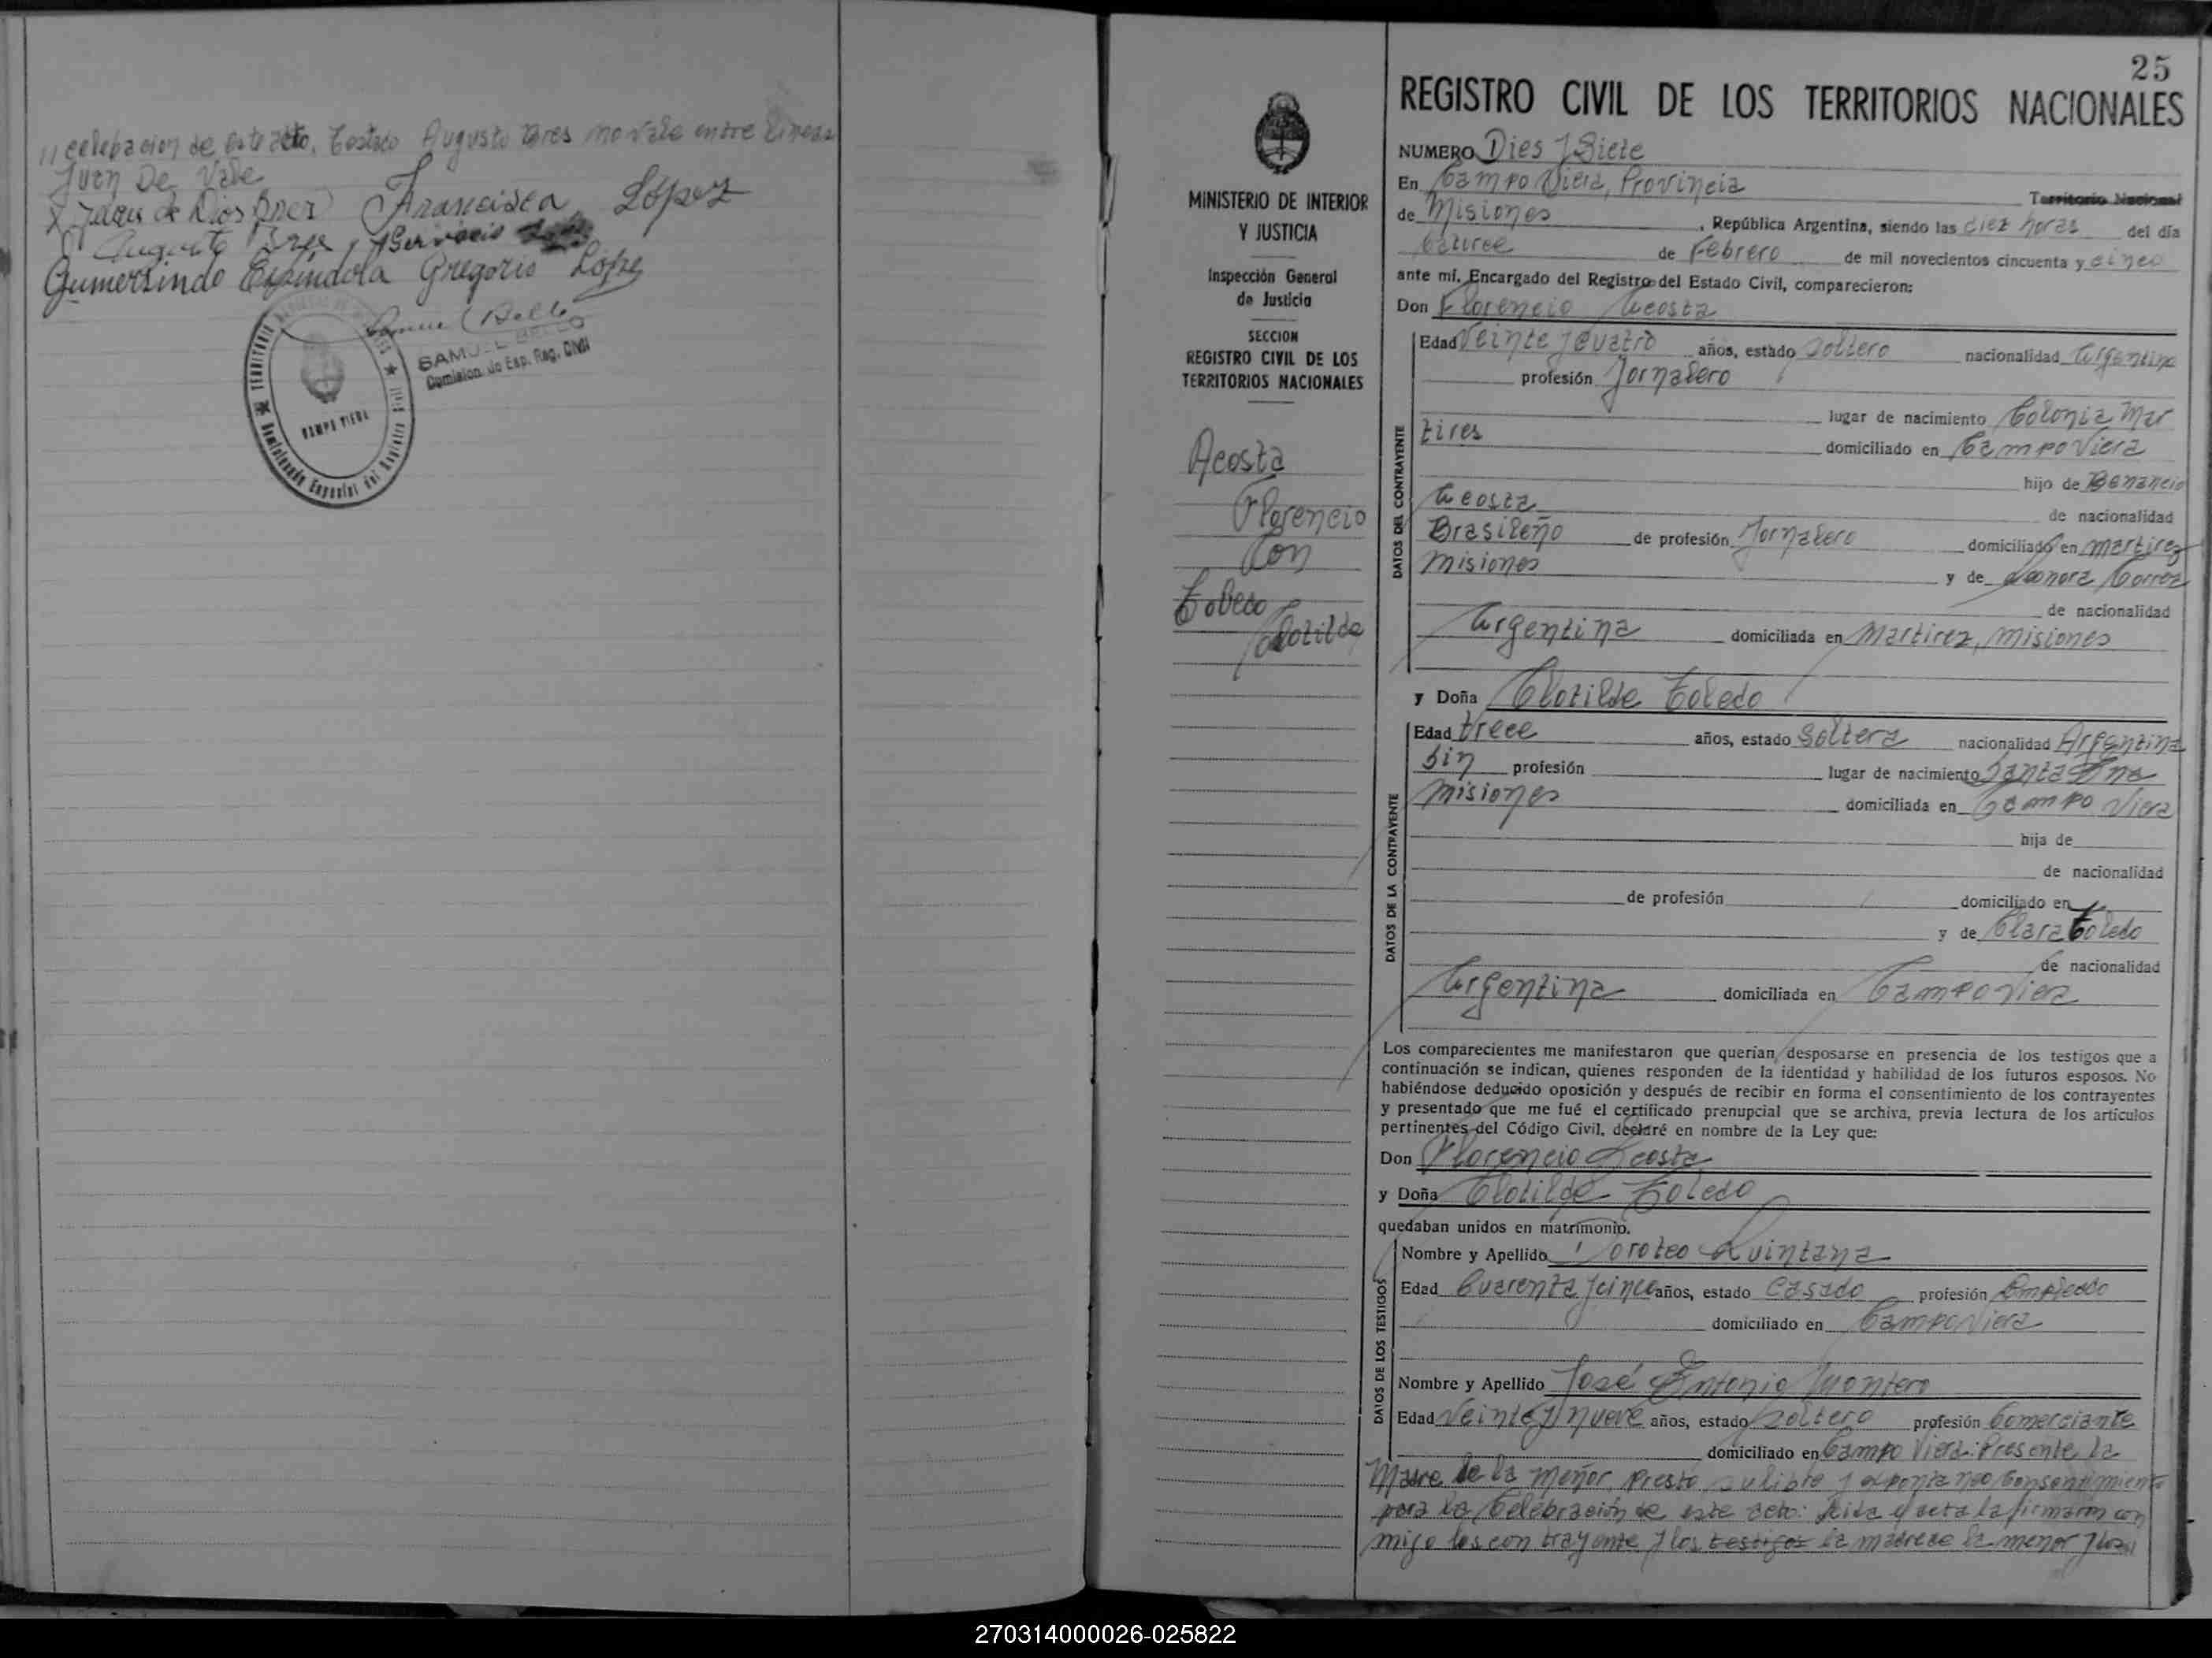 celebracion de este acto. Testado Augusto Bres no vale entre lineas
Juan De Vale
X Juan de Dios Brer Francisca López
Augusto Bres Servacio
Gumersindo Espíndola Gregorio López
Samuel Bello
SAMUEL BELLO
Comision. de Esp. Reg. Civil
CAMPO VIERA
25
REGISTRO CIVIL DE LOS TERRITORIOS NACIONALES
MINISTERIO DE INTERIOR
Y JUSTICIA
Inspección General
de Justicia
SECCION
REGISTRO CIVIL DE LOS
TERRITORIOS NACIONALES
Acosta
Florencio
Con
Toledo
Clotilde
NUMERO Dies y Siete
En Campo Viera, Provincia Territorio Nacional
de Misiones, República Argentina, siendo las diez horas del día
Catorce de Febrero de mil novecientos cincuenta y cinco
ante mí, Encargado del Registro del Estado Civil, comparecieron:
Don Florencio Acosta
DATOS DEL CONTRAYENTE
Edad Veinte y Cuatro años, estado Soltero nacionalidad Argentina
profesión Jornalero
lugar de nacimiento Colonia Mar
tires domiciliado en Campo Viera
hijo de Benancio
Acosta de nacionalidad
Brasileño de profesión Jornalero domiciliado en Martirez
Misiones y de Leonora Correa
de nacionalidad
Argentina domiciliada en Martirez, Misiones
y Doña Clotilde Toledo
DATOS DE LA CONTRAYENTE
Edad trece años, estado Soltera nacionalidad Argentina
Sin profesión lugar de nacimiento Santa Ana
Misiones domiciliada en Campo Viera
hija de
de nacionalidad
de profesión domiciliado en
y de Clara Toledo
de nacionalidad
Argentina domiciliada en Campo Viera
Los comparecientes me manifestaron que querían desposarse en presencia de los testigos que a
continuación se indican, quienes responden de la identidad y habilidad de los futuros esposos. No
habiéndose deducido oposición y después de recibir en forma el consentimiento de los contrayentes
y presentado que me fué el certificado prenupcial que se archiva, previa lectura de los artículos
pertinentes del Código Civil, declaré en nombre de la Ley que:
Don Florencio Acosta
y Doña Clotilde Toledo
quedaban unidos en matrimonio.
DATOS DE LOS TESTIGOS
Nombre y Apellido Doroteo Quintana
Edad Cuarenta y cinco años, estado Casado profesión Empleado
domiciliado en Campo Viera
Nombre y Apellido José Antonio Montero
Edad Veinte y nueve años, estado Soltero profesión Comerciante
domiciliado en Campo Viera: Presente la
Madre de la meñor, presto su libre y esponta neo Consentimiento
para la Celebración de este acto: leida el acta la firmaron con
migo los con trayente y los testigos la madre de la menor y los
270314000026-025822